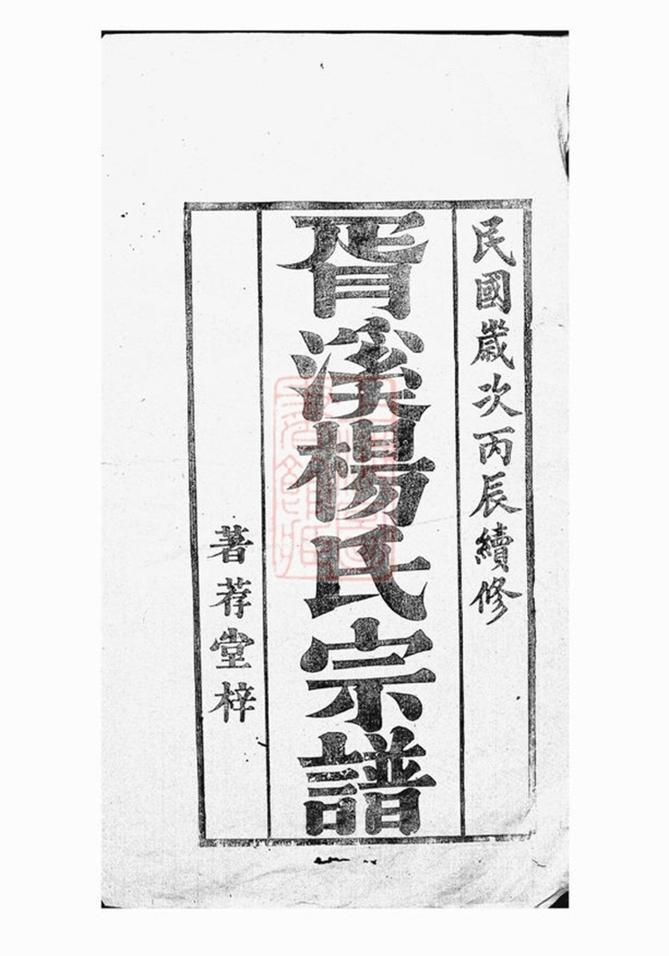 民國歲次丙辰續修
胥溪楊氏宗譜
著荐堂梓